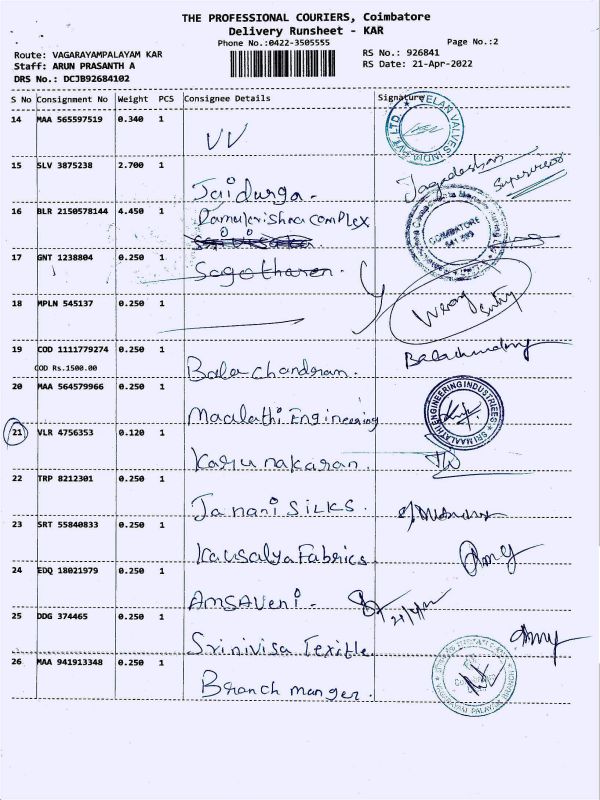 THE PROFESSIONAL COURIERS, Coimbatore
Delivery Runsheet - KAR
Phone No.:0422-3505555
Page No.:2
Route: VAGARAYAMPALAYAM KAR
RS No.: 926841
Staff: ARUN PRASANTH A
RS Date: 21-Apr-2022
DRS No.: DCJB92684102
S No Consignment No Weight PCS Consignee Details Signature
14 MAA 565597519 0.340 1
VV
VELAN VALVES INDIA PVT. LTD.
15 SLV 3875238 2.700 1
Jaidurga.
Jagadeshan
Supervisor
16 BLR 2150578144 4.450 1
Ramukrishna complex
COIMBATORE
17 GNT 1238804 0.250 1
Sagotharen.
Wrong
entry
18 MPLN 545137 0.250 1
19 COD 1111779274 0.250 1
COD Rs.1500.00
Bala Chandram.
Balachandran
20 MAA 564579966 0.250 1
Maalathi Engineering
SRI MAALATHI ENGINEERING INDUSTRIEES
21 VLR 4756353 0.120 1
Karunakaran.
22 TRP 8212301 0.250 1
Janani SILKS.
23 SRT 55840833 0.250 1
Kausalya Fabrics
24 EDQ 18021979 0.250 1
AMSAVeni.
25 DDG 374465 0.250 1
Srinivisa Texitle
26 MAA 941913348 0.250 1
Branch manger.